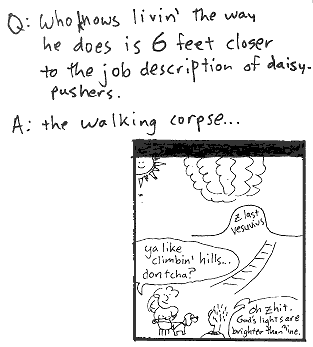 Q: Who knows livin' the way
he does is 6 feet closer
to the job description of daisy-
pushers.
A: the walking corpse...
z last
vesuvius
ya like
climbin' hills...
dontcha?
oh zhit.
God's lights are
brighter than mine.